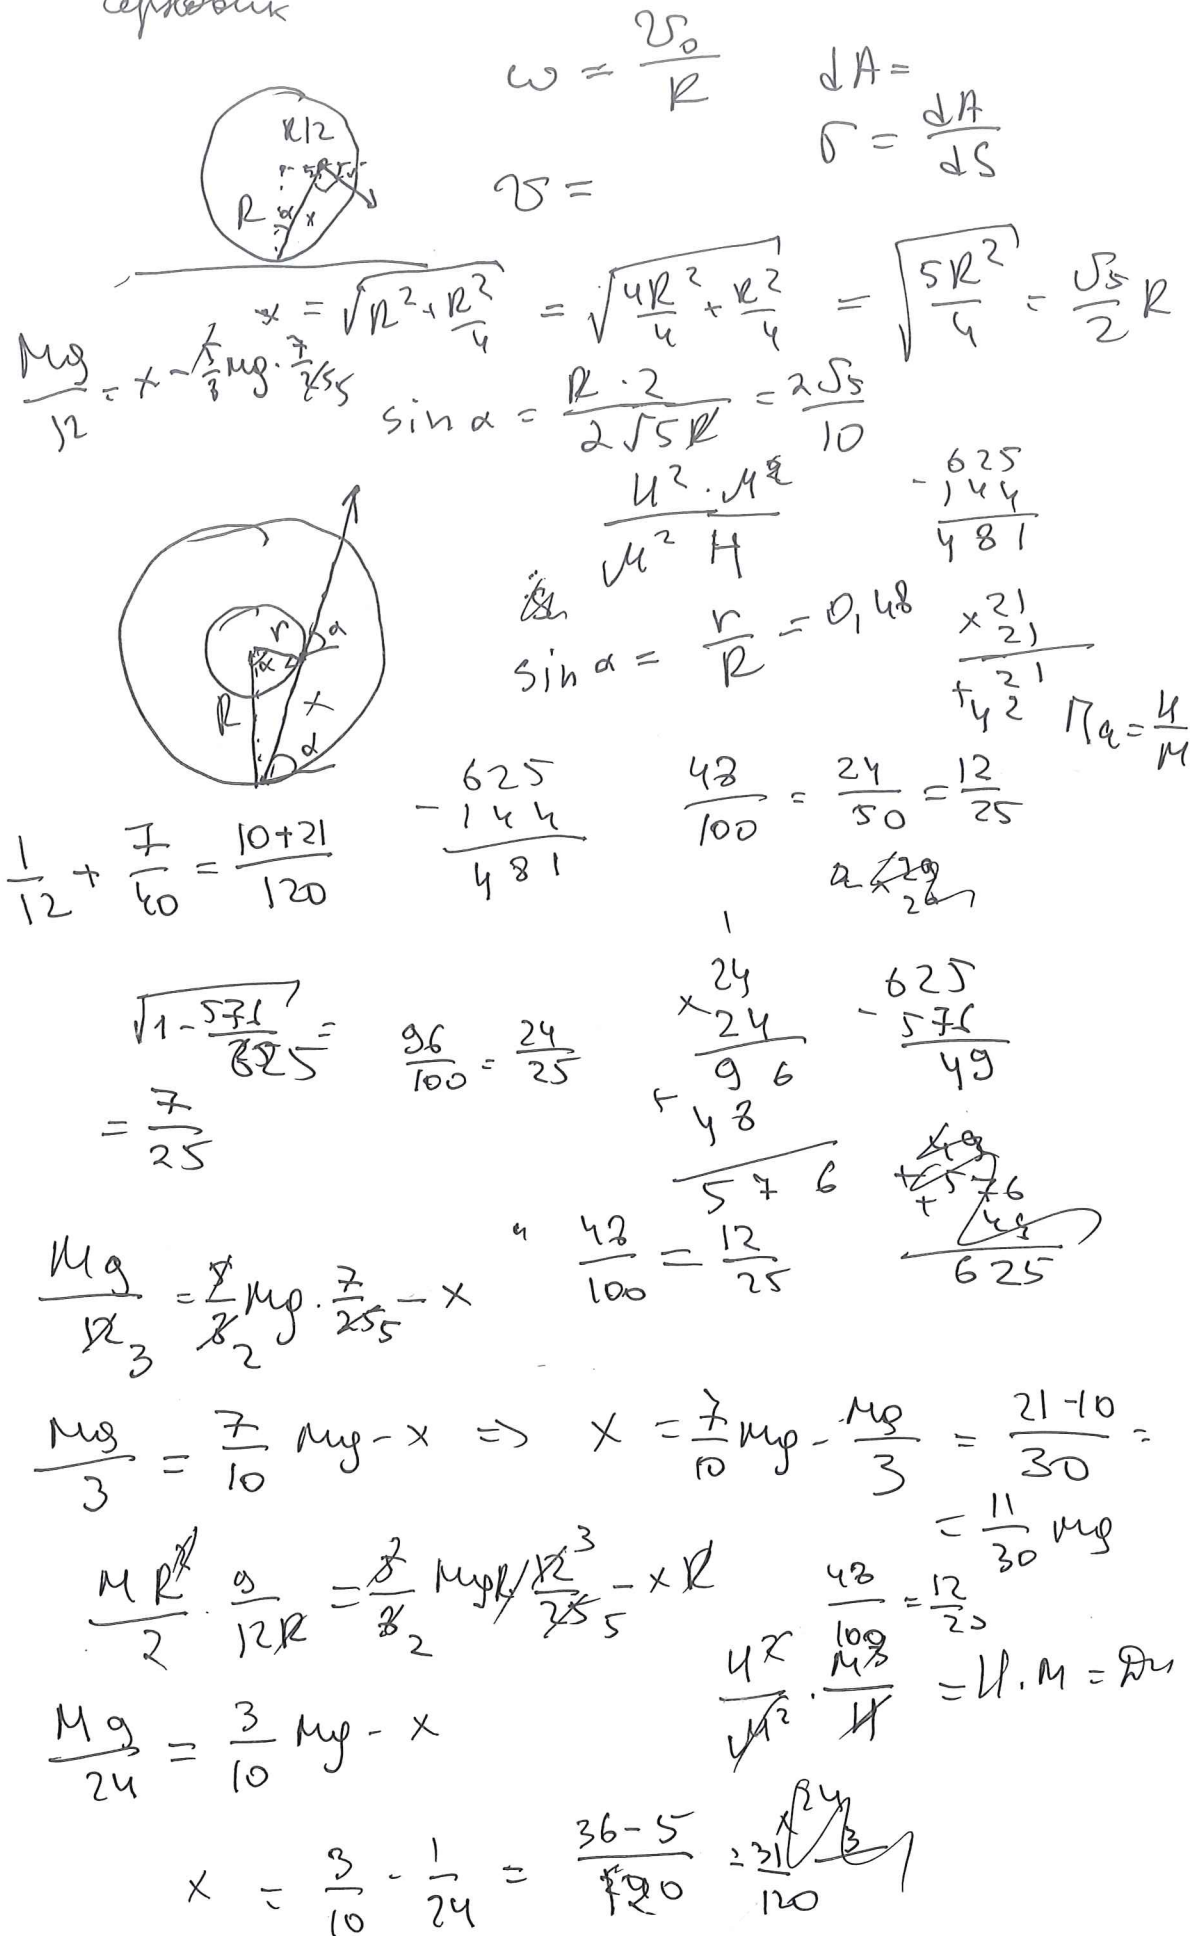 Черновик
ω = v₀/R
dA =
σ = dA/dS
v =
R/2
R α x
x = √(R² + R²/4) = √(4R²/4 + R²/4) = √(5R²/4) = √5/2 R
Mg/12 = x - Mg · 7/25 5
sin α = R · 2/2√5R = 2√5/10
H²/м² · м²/H
- 625
144
481
r α
α
R x
α
sin α = r/R = 0,48
× 21
21
21
+ 42
Па = H/м
1/12 + 7/40 = 10+21/120
- 625
144
481
48/100 = 24/50 = 12/25
√(1 - 576/625) =
= 7/25
96/100 = 24/25
1
× 24
24
96
+ 48
576
- 625
576
49
+ 576
49
625
Mg/12 3 = 2 Mg · 7/25 5 - x
48/100 = 12/25
Mg/3 = 7/10 Mg - x ⇒ x = 7/10 Mg - Mg/3 = 21-10/30 =
= 11/30 Mg
MR²/2 · g/12R = 2 MgR 12/25 3/5 - xR
48/100 = 12/25
H²/м² · м³/H = H·м = Дж
Mg/24 = 3/10 Mg - x
x = 3/10 - 1/24 = 36-5/120 = 31/120